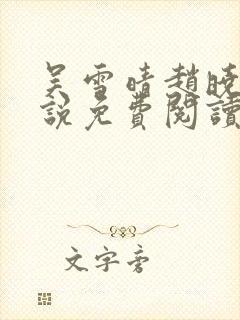 吴雪晴趙曉
說免費閱讀
文字旁